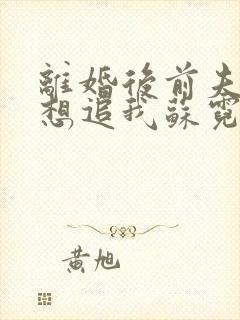 離婚後前夫
想追我蘇霓
黃旭